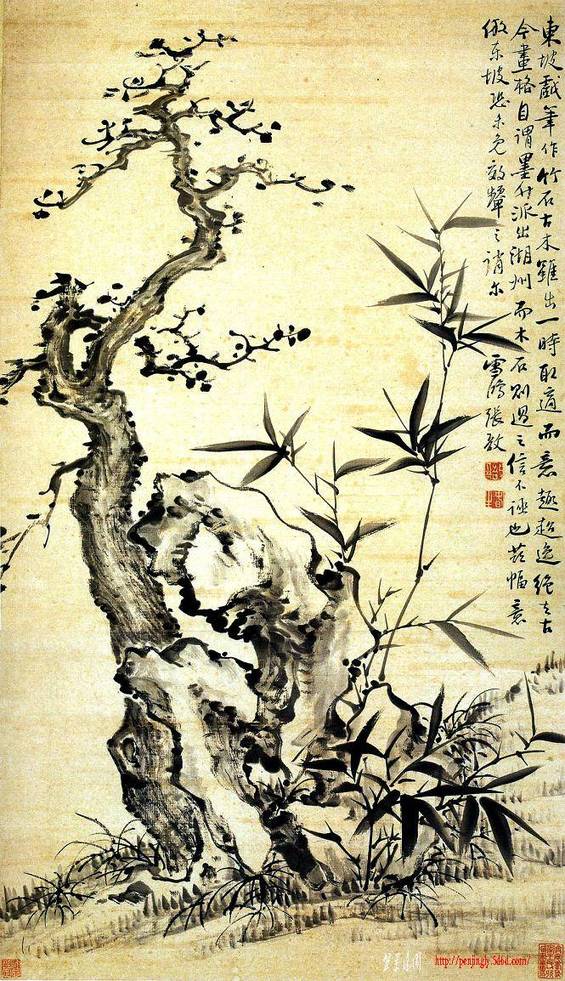 東坡戲筆作竹石古木雖出一時取適而意趣超逸絕去古
今畫格自謂墨竹派出湖州而木石則過之信不誣也茲幅意
倣东坡恐未免效顰之誚尔
雪鴻張敔
http://penjingly.5d6d.com/